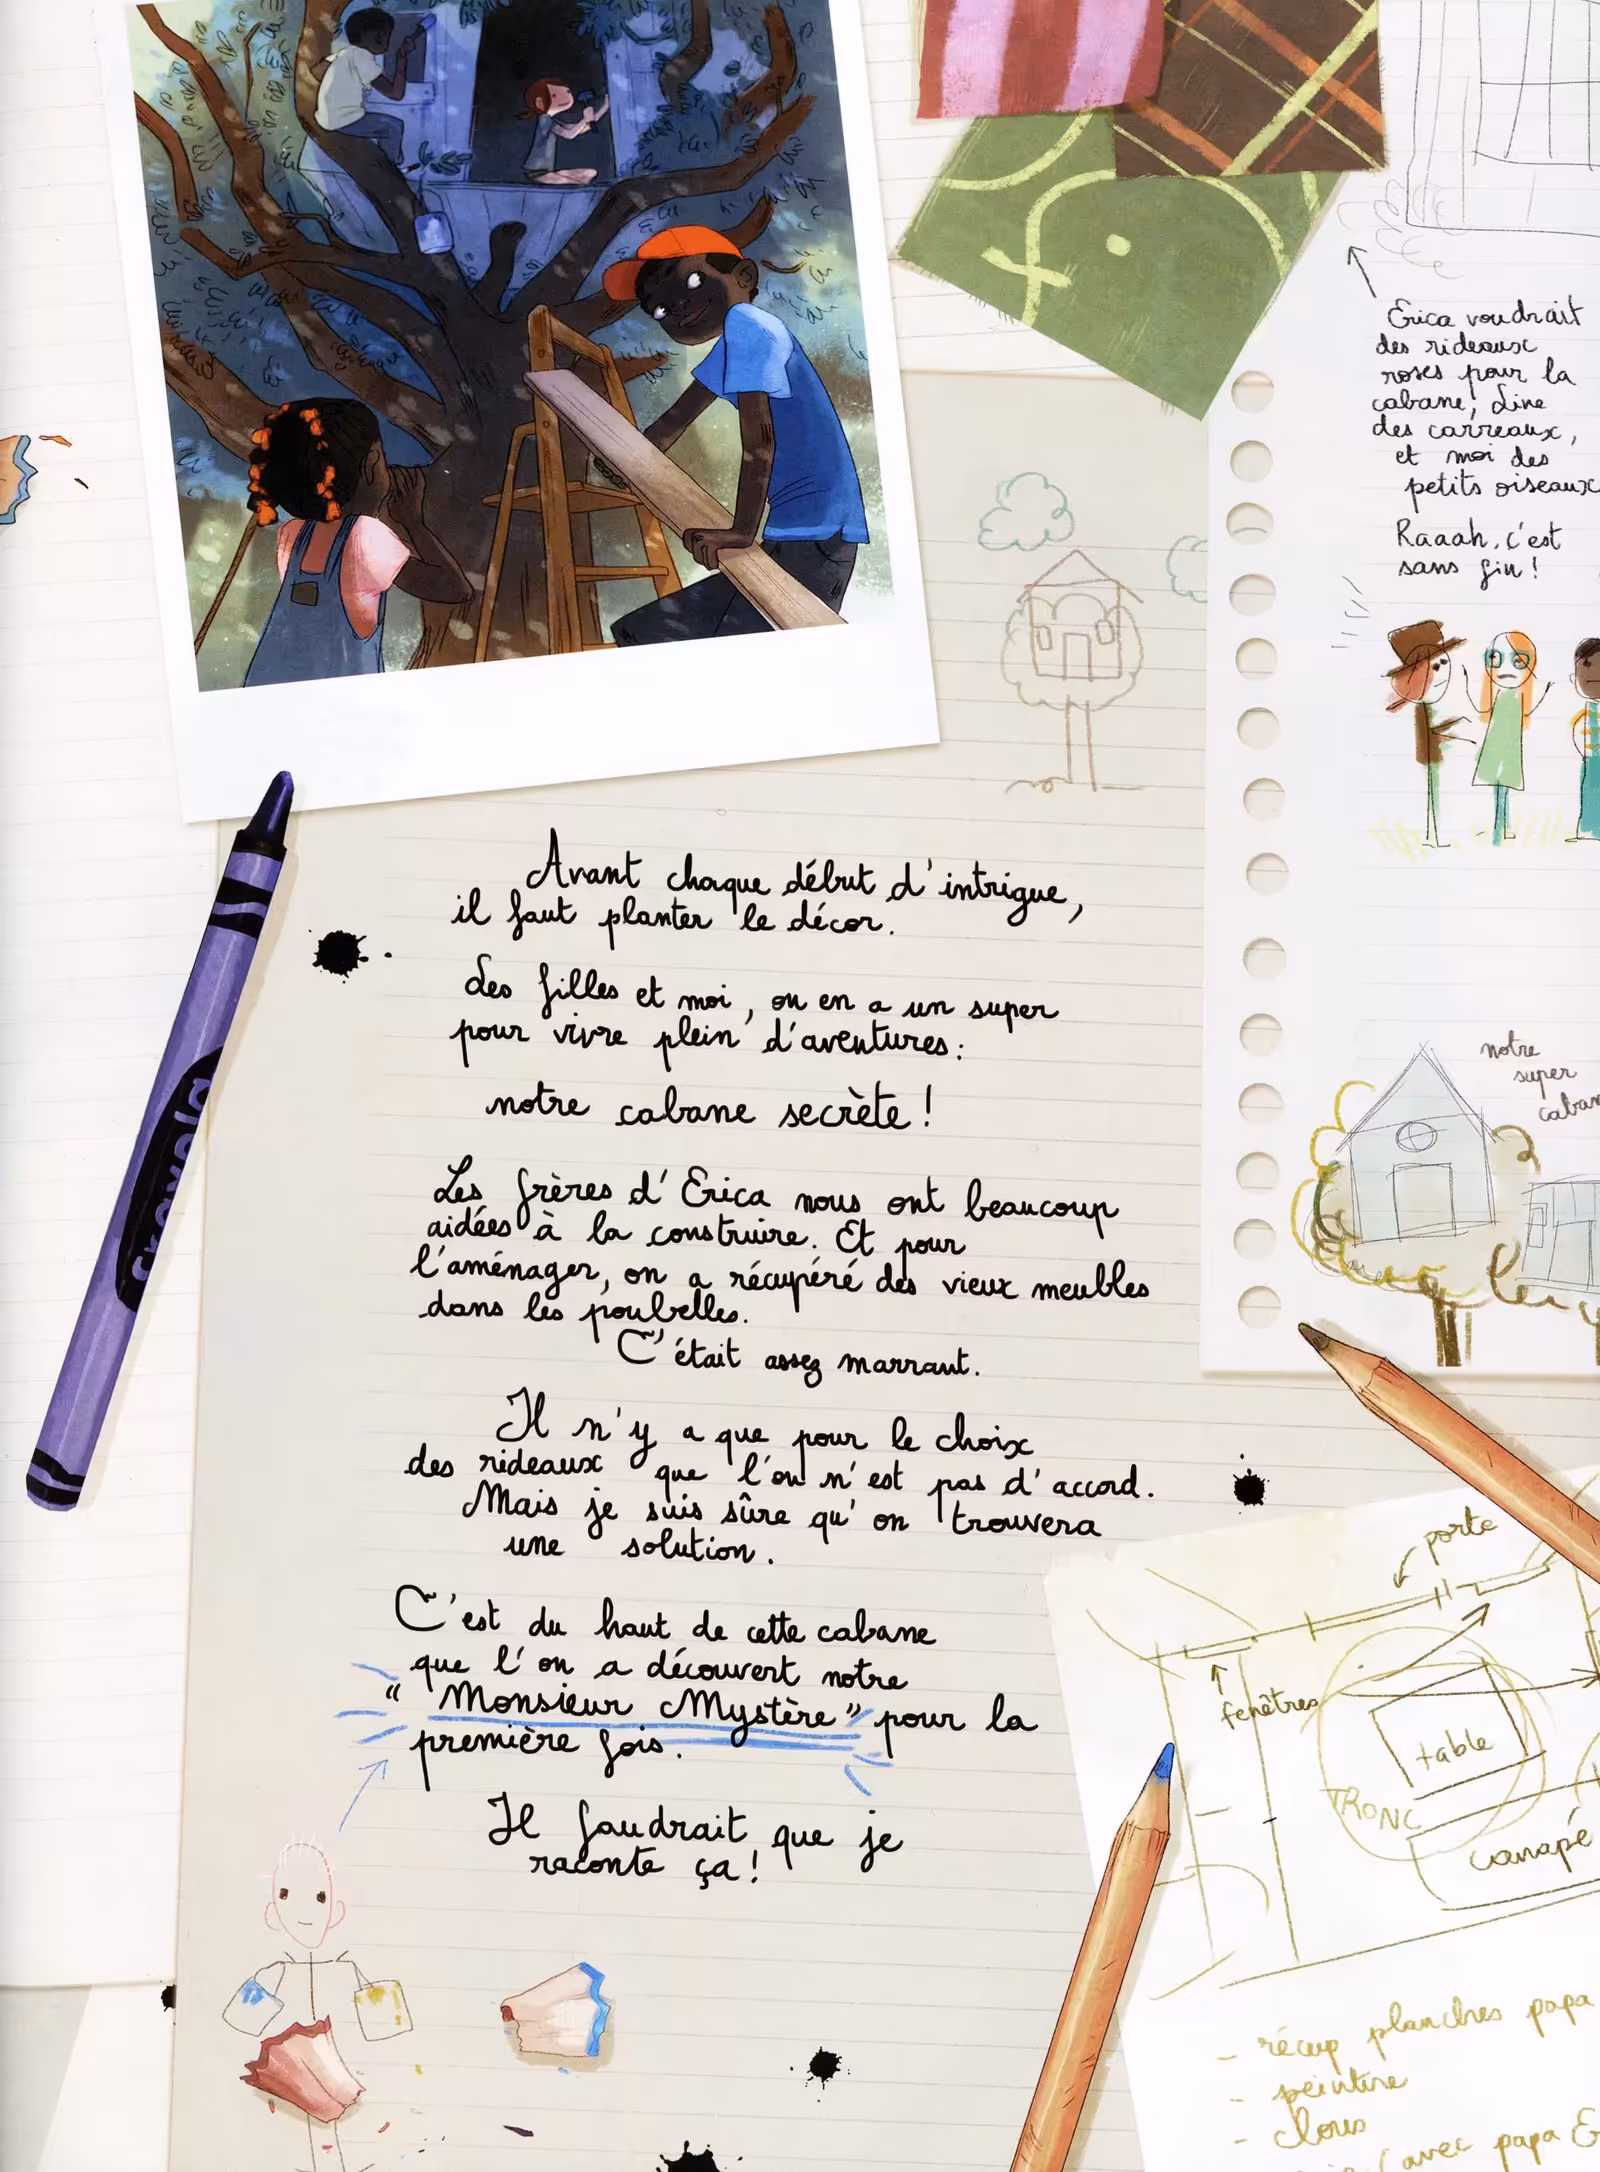 Erica voudrait
des rideaux
roses pour la
cabane, Line
des carreaux,
et moi des
petits oiseaux
Raaah, c'est
sans fin !
Avant chaque début d'intrigue,
il faut planter le décor.
Les filles et moi, on en a un super
pour vivre plein d'aventures :
notre cabane secrète !
Les frères d'Erica nous ont beaucoup
aidées à la construire. Et pour
l'aménager, on a récupéré des vieux meubles
dans les poubelles.
C'était assez marrant.
Il n'y a que pour le choix
des rideaux que l'on n'est pas d'accord.
Mais je suis sûre qu'on trouvera
une solution.
C'est du haut de cette cabane
que l'on a découvert notre
"Monsieur Mystère" pour la
première fois.
Il faudrait que je
raconte ça !
Crayola
notre
super
caban
porte
fenêtres
table
TRONC
canapé
- récup planches papa
- peinture
- clous
(avec papa E